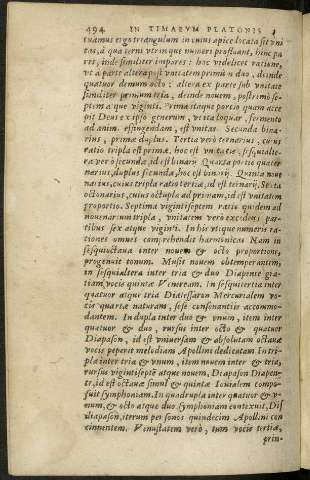 494 IN TIMAEVM PLATONIS
tuamus ergo triangulum in cuius apice locata sit vni
tas, à qua terni vtrinque numeri profluant, hinc pa
res, inde similiter impares: hoc videlicet ratione,
vt à parte altera post vnitatem primũ duo, deinde
quatuor demum octo: altera ex parte sub vnitate
similiter primum tria, deinde nouem, postremò se-
ptem atque viginti. Prima itaque portio quam acce
pit Deus ex ipso generum, vt ita loquar, fermento
ad animã effingendam, est vnitas. Secunda bina-
rius, primæ duplus. Tertia verò ternarius, cuius
ratio tripla est primæ, hoc est vnitatis, sesquialte-
ra verò secundæ, id est binarij Quarta portio quater
narius, duplus secundæ, hoc est binarij. Quinta noue
narius, cuius tripla ratio tertiæ, id est ternarij. Sexta
octonarius, cuius octupla ad primam, id est vnitatem
proportio. Septima vigintiseptem ratio quidem ad
nouenarium tripla, vnitatem verò excedens par-
tibus sex atque viginti. In his vtique numeris ra-
tiones omnes comprehendis harmonicas Nam in
sesquioctaua inter nouem & octo proportione,
progenuit tonum. Musis nouem obtemperantem,
in sesquialtera inter tria & duo Diapente gra-
tiam, vocis quintæ Veneream. In sesquitertia inter
quatuor atque tria Diatessaron Mercurialem vo-
cis quartæ naturam, sese consonantiis accommo-
dantem. In dupla inter duo & vnum, item inter
quatuor & duo, rursus inter octo & quatuor
Diapason, id est vniuersam & absolutam octauæ
vocis peperit melodiam Apollini dedicatam. In tri-
pla inter tria & vnum, item nouem inter & tria,
rursus vigintiseptẽ atque nouem, Diapason Diapen-
te, id est octauæ simul & quintæ Iouialem compo-
suit symphoniam. In quadrupla inter quatuor & v-
num, & octo atque duo symphoniam contexuit, Dis
diapason, iterum per sonos quindecim Apollini con
cinentem. Venustatem verò, tum vocis tertiæ,
prin-